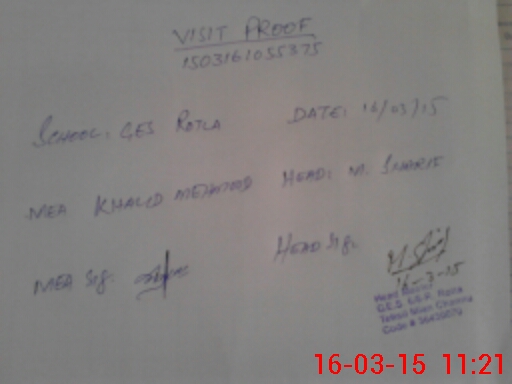 VISIT PROOF
1503161055375
SCHOOL: GES ROTLA DATE: 16/03/15
MEA KHALID MEHMOOD HEAD: M. SHARIF
MEA Sig. HEAD Sig.
16-3-15
Head Master
G.E.S. Rotla
Tehsil Mian Channu
Code #
16-03-15 11:21